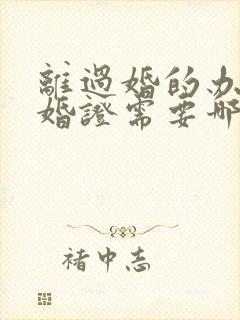 離過婚的办
婚證需要哪
褚中志